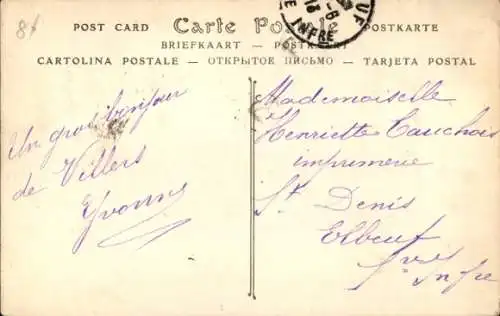 8f
POST CARD Carte Postale POSTKARTE
BRIEFKAART — POSTKAART
CARTOLINA POSTALE — ОТКРЫТОЕ ПИСЬМО — TARJETA POSTAL
UF
E INFRE
Un gros bonjour
de Villers
Yvonne
Mademoiselle
Henriette Cauchois
imprimerie
St Denis
Elbeuf
Infre